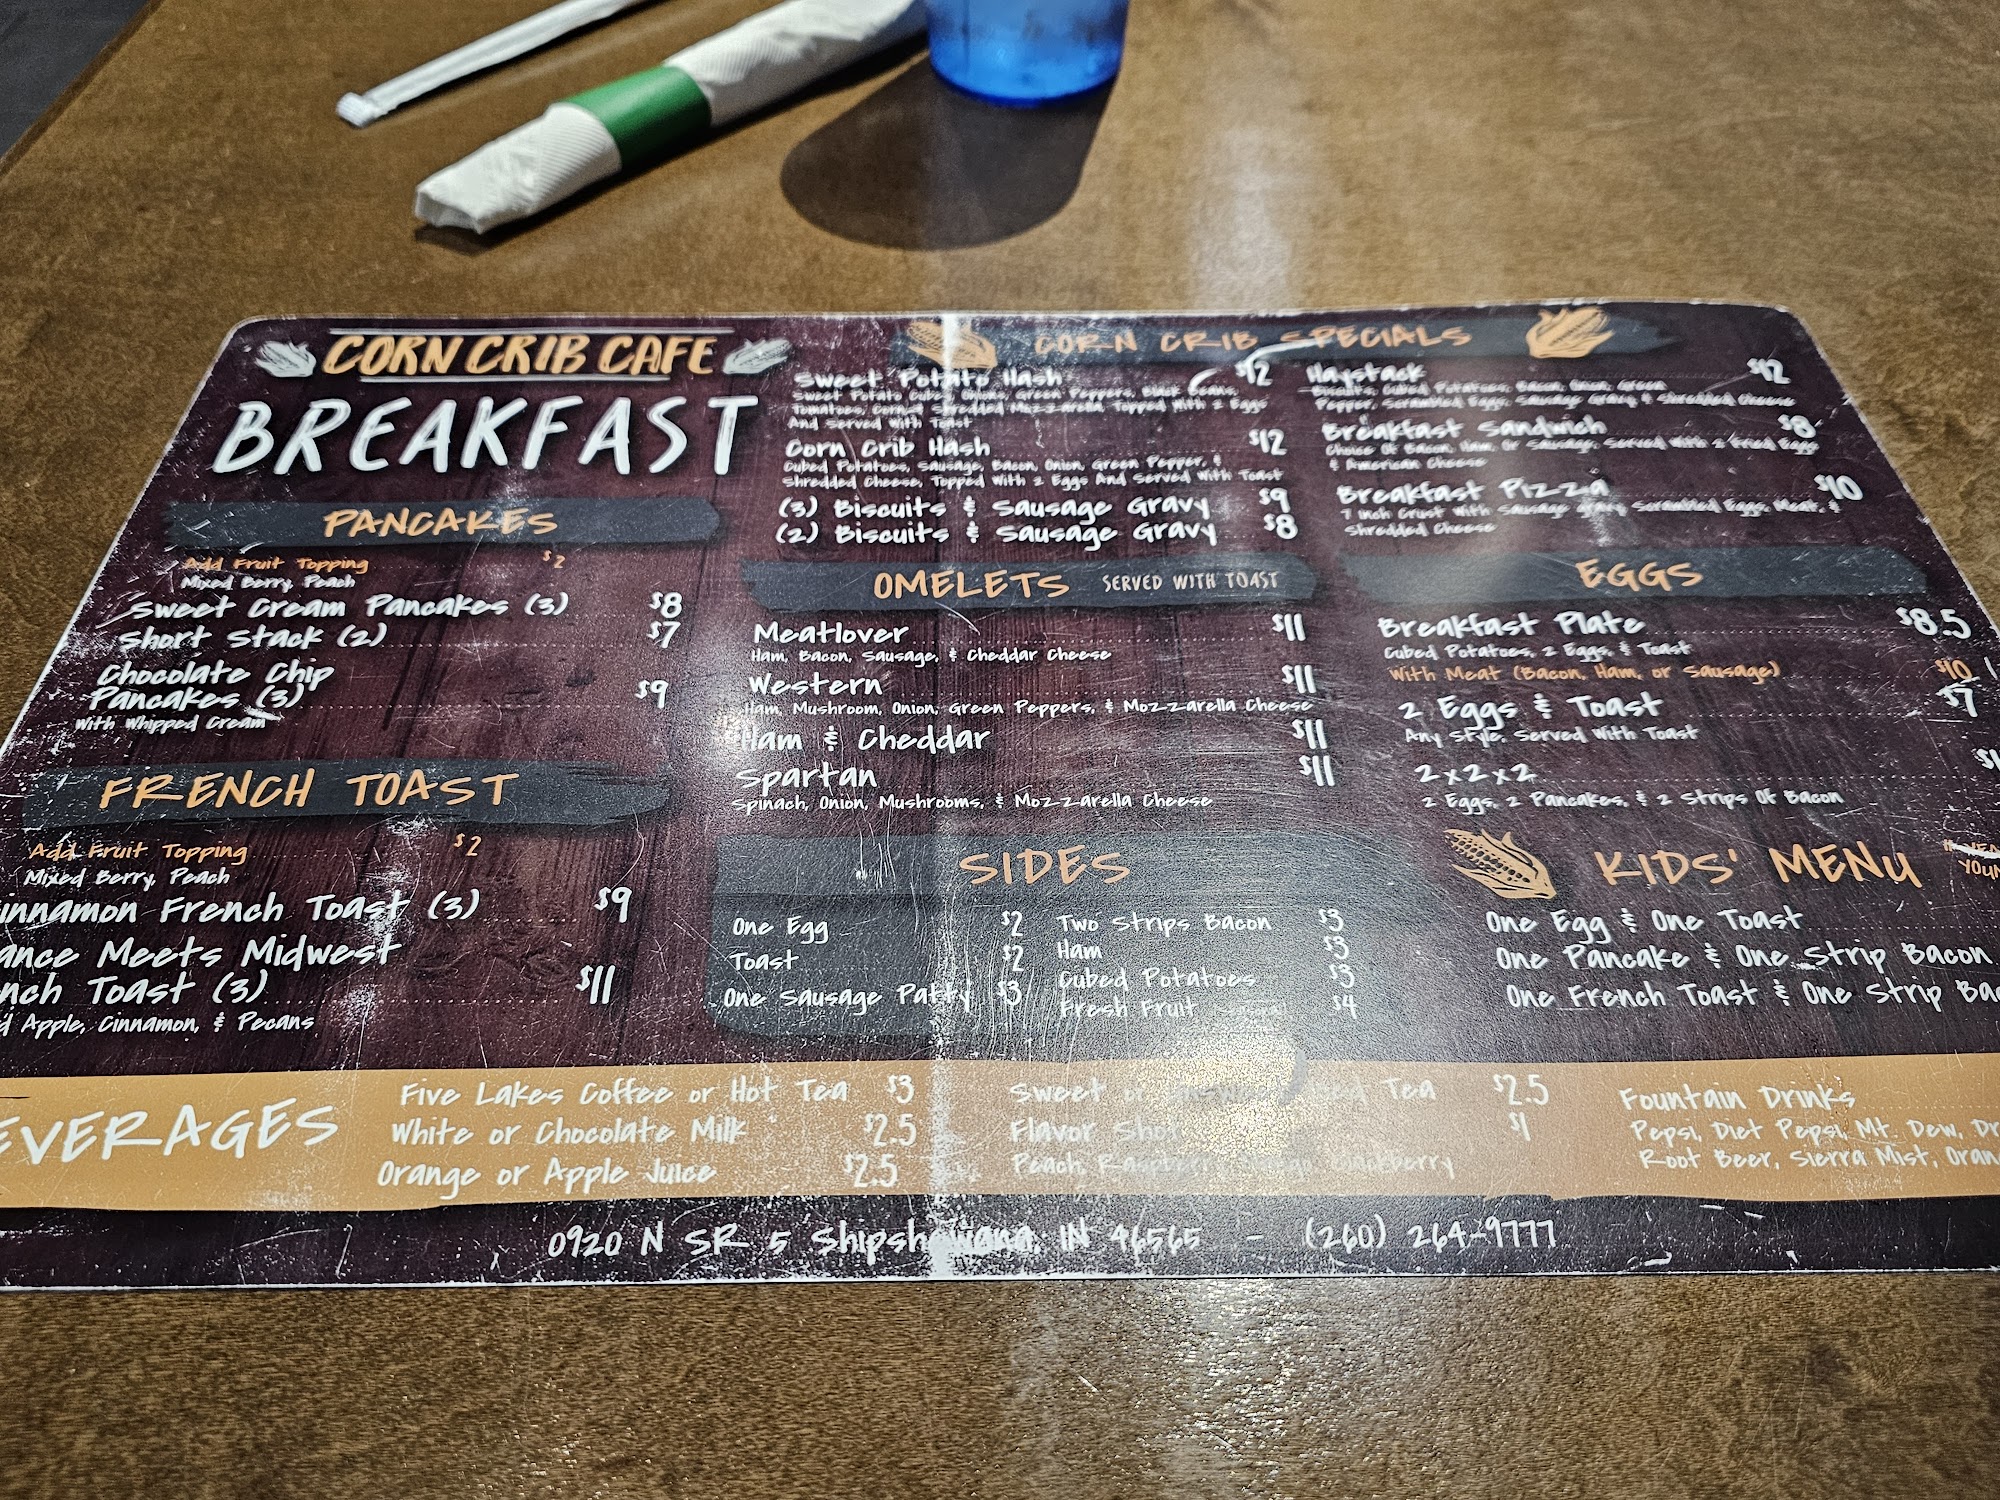 CORN CRIB CAFE
BREAKFAST
PANCAKES
Add Fruit Topping $2
Mixed Berry, Peach
Sweet Cream Pancakes (3) $8
Short Stack (2) $7
Chocolate Chip
Pancakes (3) $9
With Whipped Cream
FRENCH TOAST
Add Fruit Topping $2
Mixed Berry, Peach
innamon French Toast (3) $9
ance Meets Midwest
nch Toast (3) $11
d Apple, Cinnamon, & Pecans
CORN CRIB SPECIALS
Sweet Potato Hash $12
Sweet Potato Cubes, Onions, Green Peppers, Black Beans,
Tomatoes, Corn & Shredded Mozzarella Topped With 2 Eggs
And Served With Toast
Corn Crib Hash $12
Cubed Potatoes, Sausage, Bacon, Onion, Green Pepper, &
Shredded Cheese, Topped With 2 Eggs And Served With Toast
(3) Biscuits & Sausage Gravy $9
(2) Biscuits & Sausage Gravy $8
Haystack $12
Biscuits, Cubed Potatoes, Bacon, Onion, Green
Pepper, Scrambled Eggs, Sausage Gravy & Shredded Cheese
Breakfast Sandwich $8
Choice Of Bacon, Ham, Or Sausage, Served With 2 Fried Eggs
& American Cheese
Breakfast Pizza $10
7 Inch Crust With Sausage Gravy, Scrambled Eggs, Meat, &
Shredded Cheese
OMELETS SERVED WITH TOAST
Meatlover $11
Ham, Bacon, Sausage, & Cheddar Cheese
Western $11
Ham, Mushroom, Onion, Green Peppers, & Mozzarella Cheese
Ham & Cheddar $11
Spartan $11
Spinach, Onion, Mushrooms, & Mozzarella Cheese
EGGS
Breakfast Plate $8.5
Cubed Potatoes, 2 Eggs, & Toast
With Meat (Bacon, Ham, or Sausage) $10
2 Eggs & Toast $7
Any Style, Served With Toast
2x2x2
2 Eggs, 2 Pancakes, & 2 Strips Of Bacon
SIDES
One Egg $2
Toast $2
One Sausage Patty $3
Two Strips Bacon $3
Ham $3
Cubed Potatoes $3
Fresh Fruit $4
KIDS' MENU
One Egg & One Toast
One Pancake & One Strip Bacon
One French Toast & One Strip Bac
EVERAGES
Five Lakes Coffee or Hot Tea $3
White or Chocolate Milk $2.5
Orange or Apple Juice $2.5
Sweet or Unsweet Iced Tea $2.5
Flavor Shot $1
Peach, Raspberry, Mango, Blackberry
Fountain Drinks
Pepsi, Diet Pepsi, Mt. Dew, Dr
Root Beer, Sierra Mist, Oran
0920 N SR 5 Shipshewana, IN 46565 - (260) 264-9777